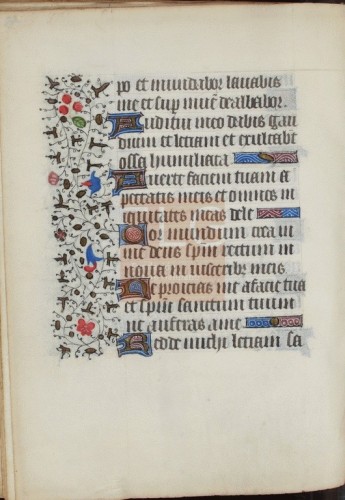 po et mundabor lavabis
me et sup nive dealbabor.
Auditui meo dabis gau
dium et leticiam et exultabt
ossa humiliata
Averte faciem tuam a
peccatis meis et omnes in
iquitates meas dele
Cor mundum crea in
me deus spm rectum in
nova in visceribz meis
Ne proicias me a facie tua
et spm sanctum tuum
ne auferas a me
Redde michi leticiam sa